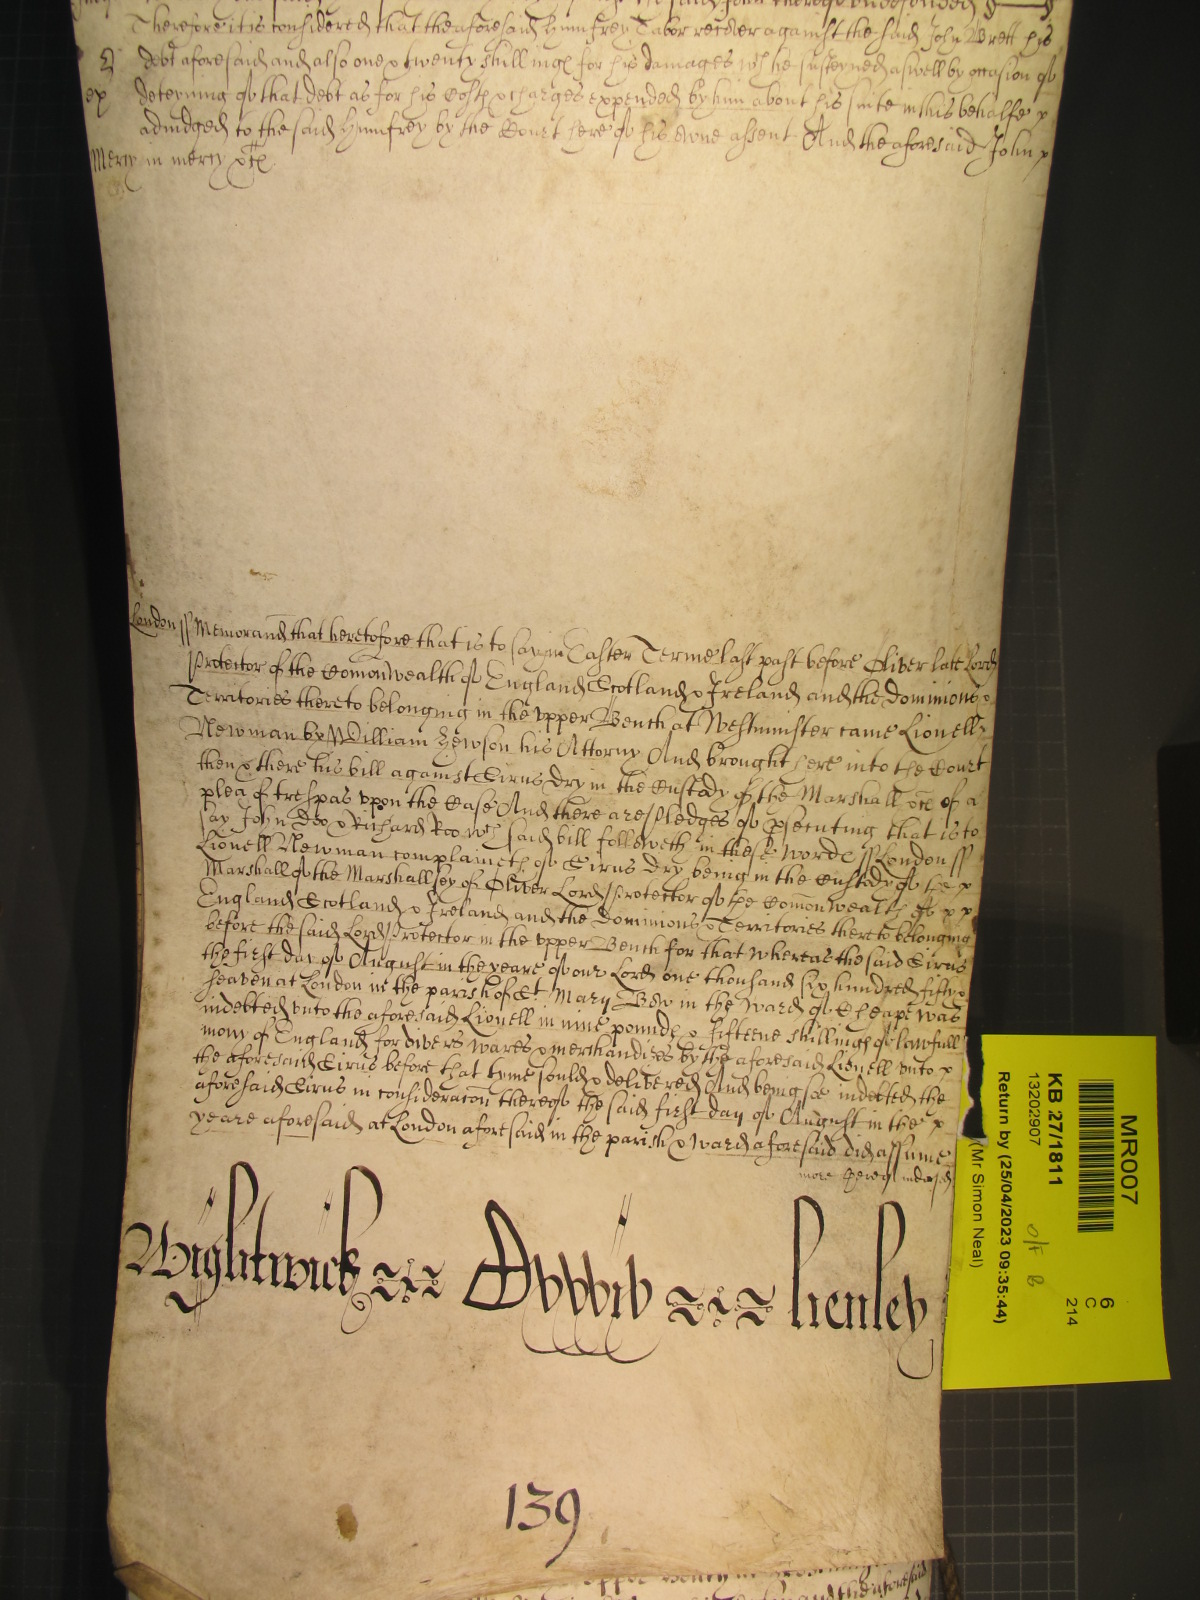 Therefore it is considered that the aforesaid Humfrey Tabor recover against the said John Brett his
debt aforesaid and also one & twenty shillings for his damages wch he susteyned aswell by occasion of
ex deteyning of that debt as for his Costs & charges expended by him about his suite in this behalfe
adiudged to the said Humfrey by the Court here of his owne assent And the aforesaid John
Mercy in mercy &c
London ss Memorand that heretofore that is to say in Easter Terme last past before Oliver late Lord
Protector of the Comonwealth of England Scotland & Ireland and the Dominions &
Territories thereto belonging in the vpper Bench at Westminster came Lionell
Newman by William Hewson his Attorny And brought here into the Court
then & there his bill against Cirus Dry in the Custody of the Marshall &c of a
plea of trespas vpon the Case And there are Pledges of psecuting that is to
say John Doo & Richard Roo wch said bill followeth in these words ss London ss
Lionell Newman complaineth of Cirus Dry being in the Custody of the
Marshall of the Marshallsey of Oliver Lord Protector of the Comonwealth of
England Scotland & Ireland and the Dominions & Territories thereto belonging
before the said Lord Protector in the vpper Bench for that whereas the said Cirus
the first day of August in the yeare of our Lord one thousand six hundred fifty &
seaven at London in the parish of St Mary Bow in the Ward of Cheape was
indebted vnto the aforesaid Lionell in nine pounds & fifteene shillings of lawfull
mony of England for divers wares & merchandizes by the aforesaid Lionell vnto
the aforesaid Cirus before that tyme sould & delivered And being soe indebted the
aforesaid Cirus in consideracon thereof the said first day of August in the
yeare aforesaid at London aforesaid in the parish & Ward aforesaid did assume
more hereof indorsed
Wightwick Owwin henley
139
MR007
KB 27/1811
13202907
Return by (25/04/2023 09:35:44)
(Mr Simon Neal)
6
C
214